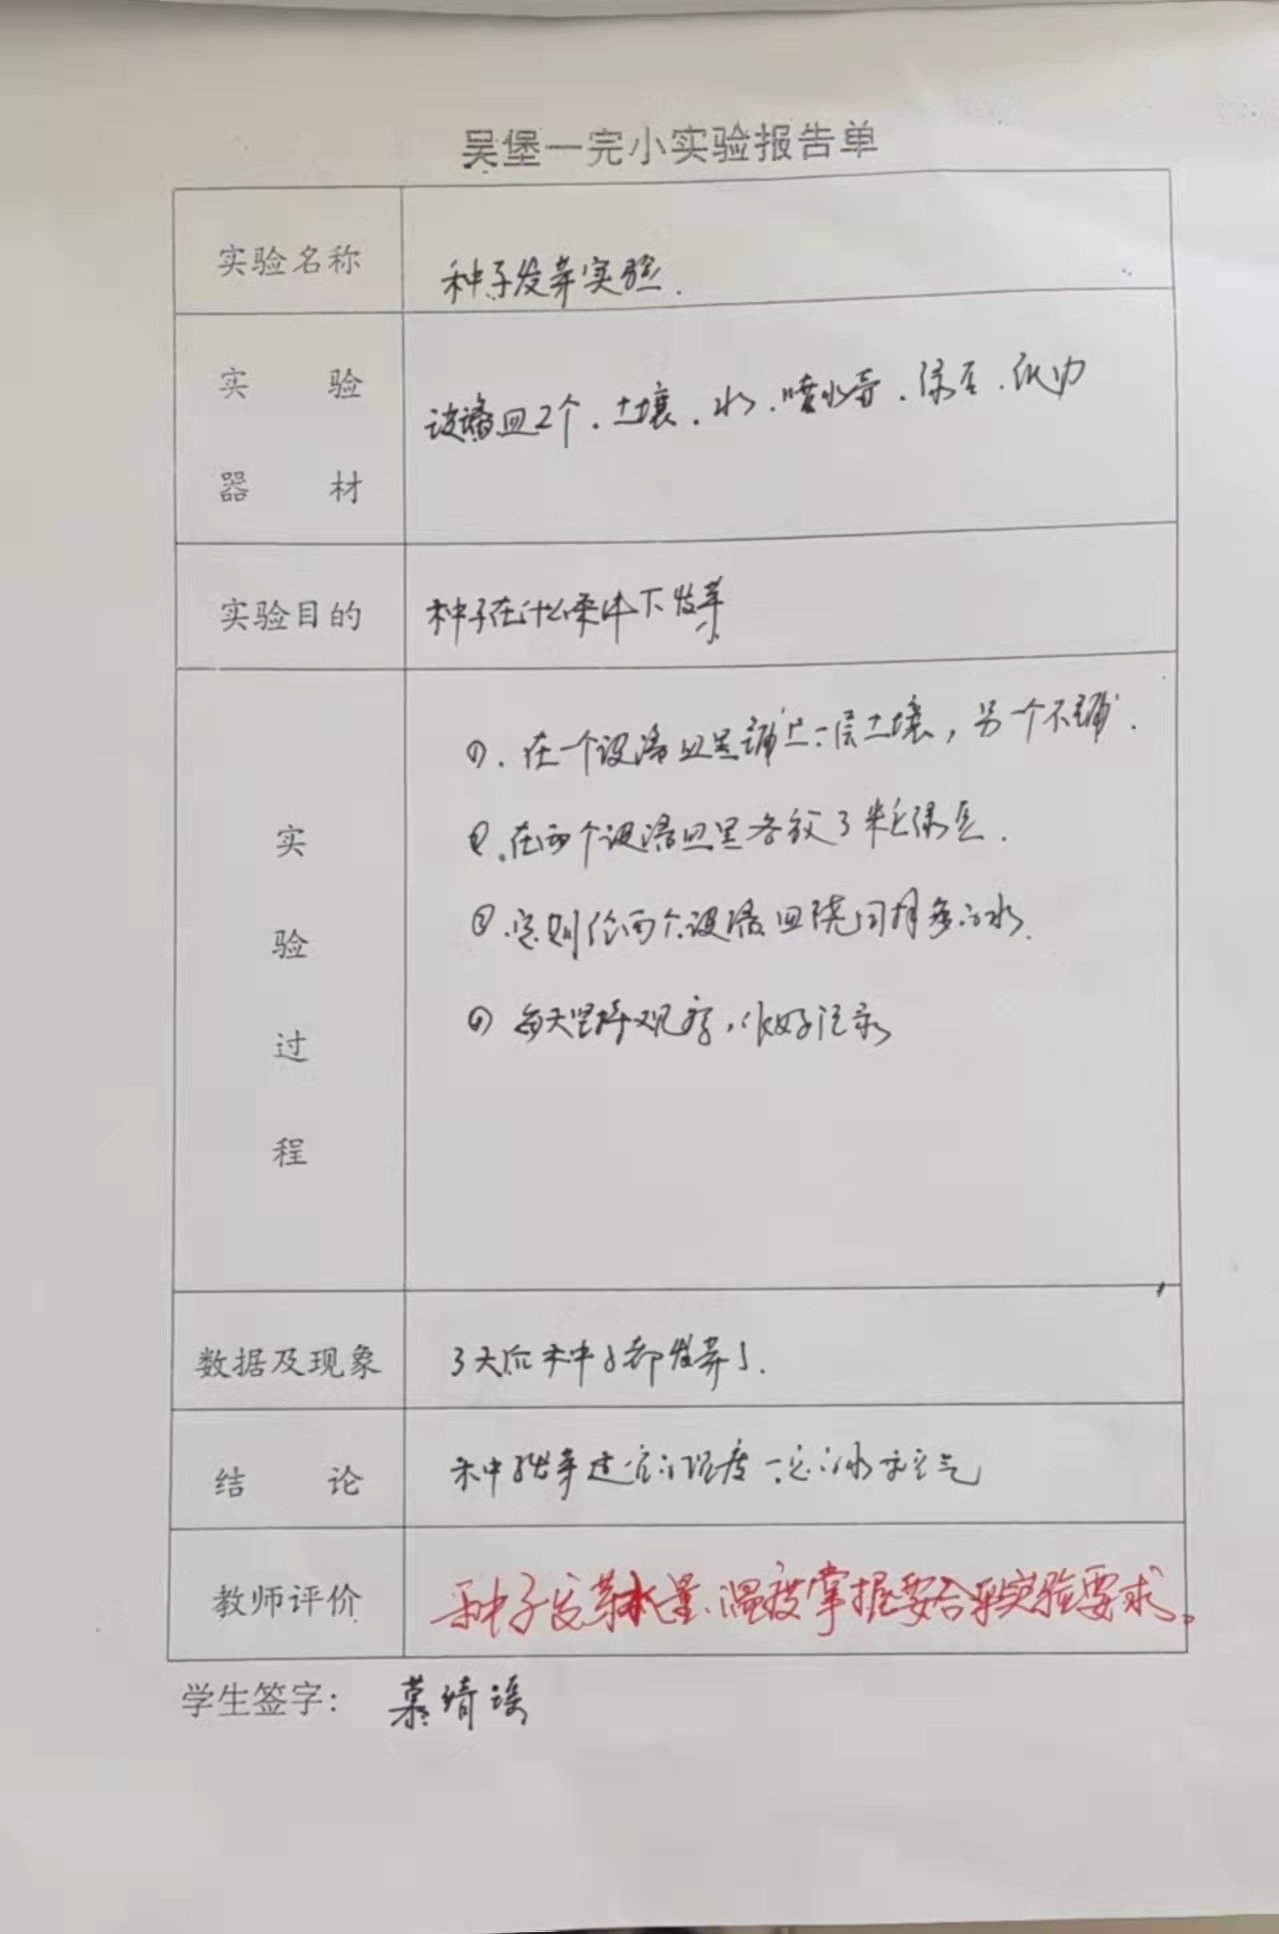 吴堡一完小实验报告单
实验名称 种子发芽实验.
实验器材 玻璃皿2个.土壤.水.喷水壶.绿豆.纸巾
实验目的 种子在什么条件下发芽
实验过程
①.在一个玻璃皿里铺上一层土壤,另一个不铺.
②.在两个玻璃皿里各放3粒绿豆.
③.定期给两个玻璃皿浇同样多的水.
④每天坚持观察,做好记录
数据及现象 3天后种子都发芽了.
结论 种子发芽适宜的温度一定的水和空气
教师评价 种子发芽水量、温度掌握要合乎实验要求。
学生签字: 慕绮